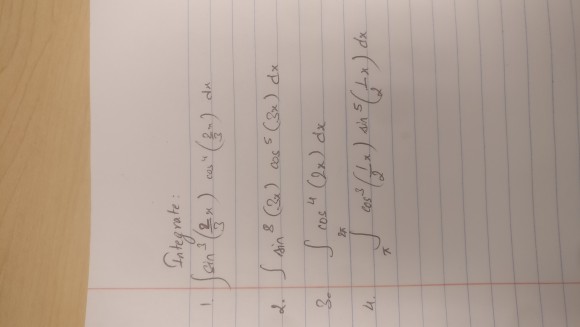 Integrate:
1. ∫ sin³(2/3 x) cos⁴(2x/3) dx
2. ∫ sin⁸(3x) cos⁵(3x) dx
3. ∫ cos⁴(2x) dx
4. ∫_π^2π cos³(1/2 x) sin⁵(1/2 x) dx